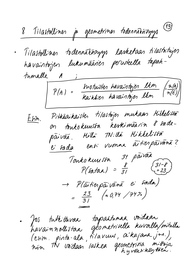 8 Tilastollinen ja geometrinen todennäköisyys
• Tilastollinen todennäköisyys lasketaan tilastojen
havaintojen lukumäärien perusteella tapah-
tumalle A :
P(A) = suotuisten havaintojen lkm / kaikkien havaintojen lkm (n(A) / n(E))
Esim.
on toukokuussa keskimäärin 8 sade-
päivää. Millä TN:llä
ei sada ensi vuonna äitienpäivänä?
Toukokuussa 31 päivää
P(sataa) = 8/31
31-8
= 23
→ P(äitienpäivänä ei sada)
= 23/31 (≈ 0,74 / 74%)
• Jos tutkittavaa tapahtumaa voidaan
havainnollistaa geometrisella kuvalla/mitalla
(esim. pinta-ala, tilavuus, aikajana, jne.),
niin TN voidaan laskea geometrisia mittoja
hyväksikäyttäen.